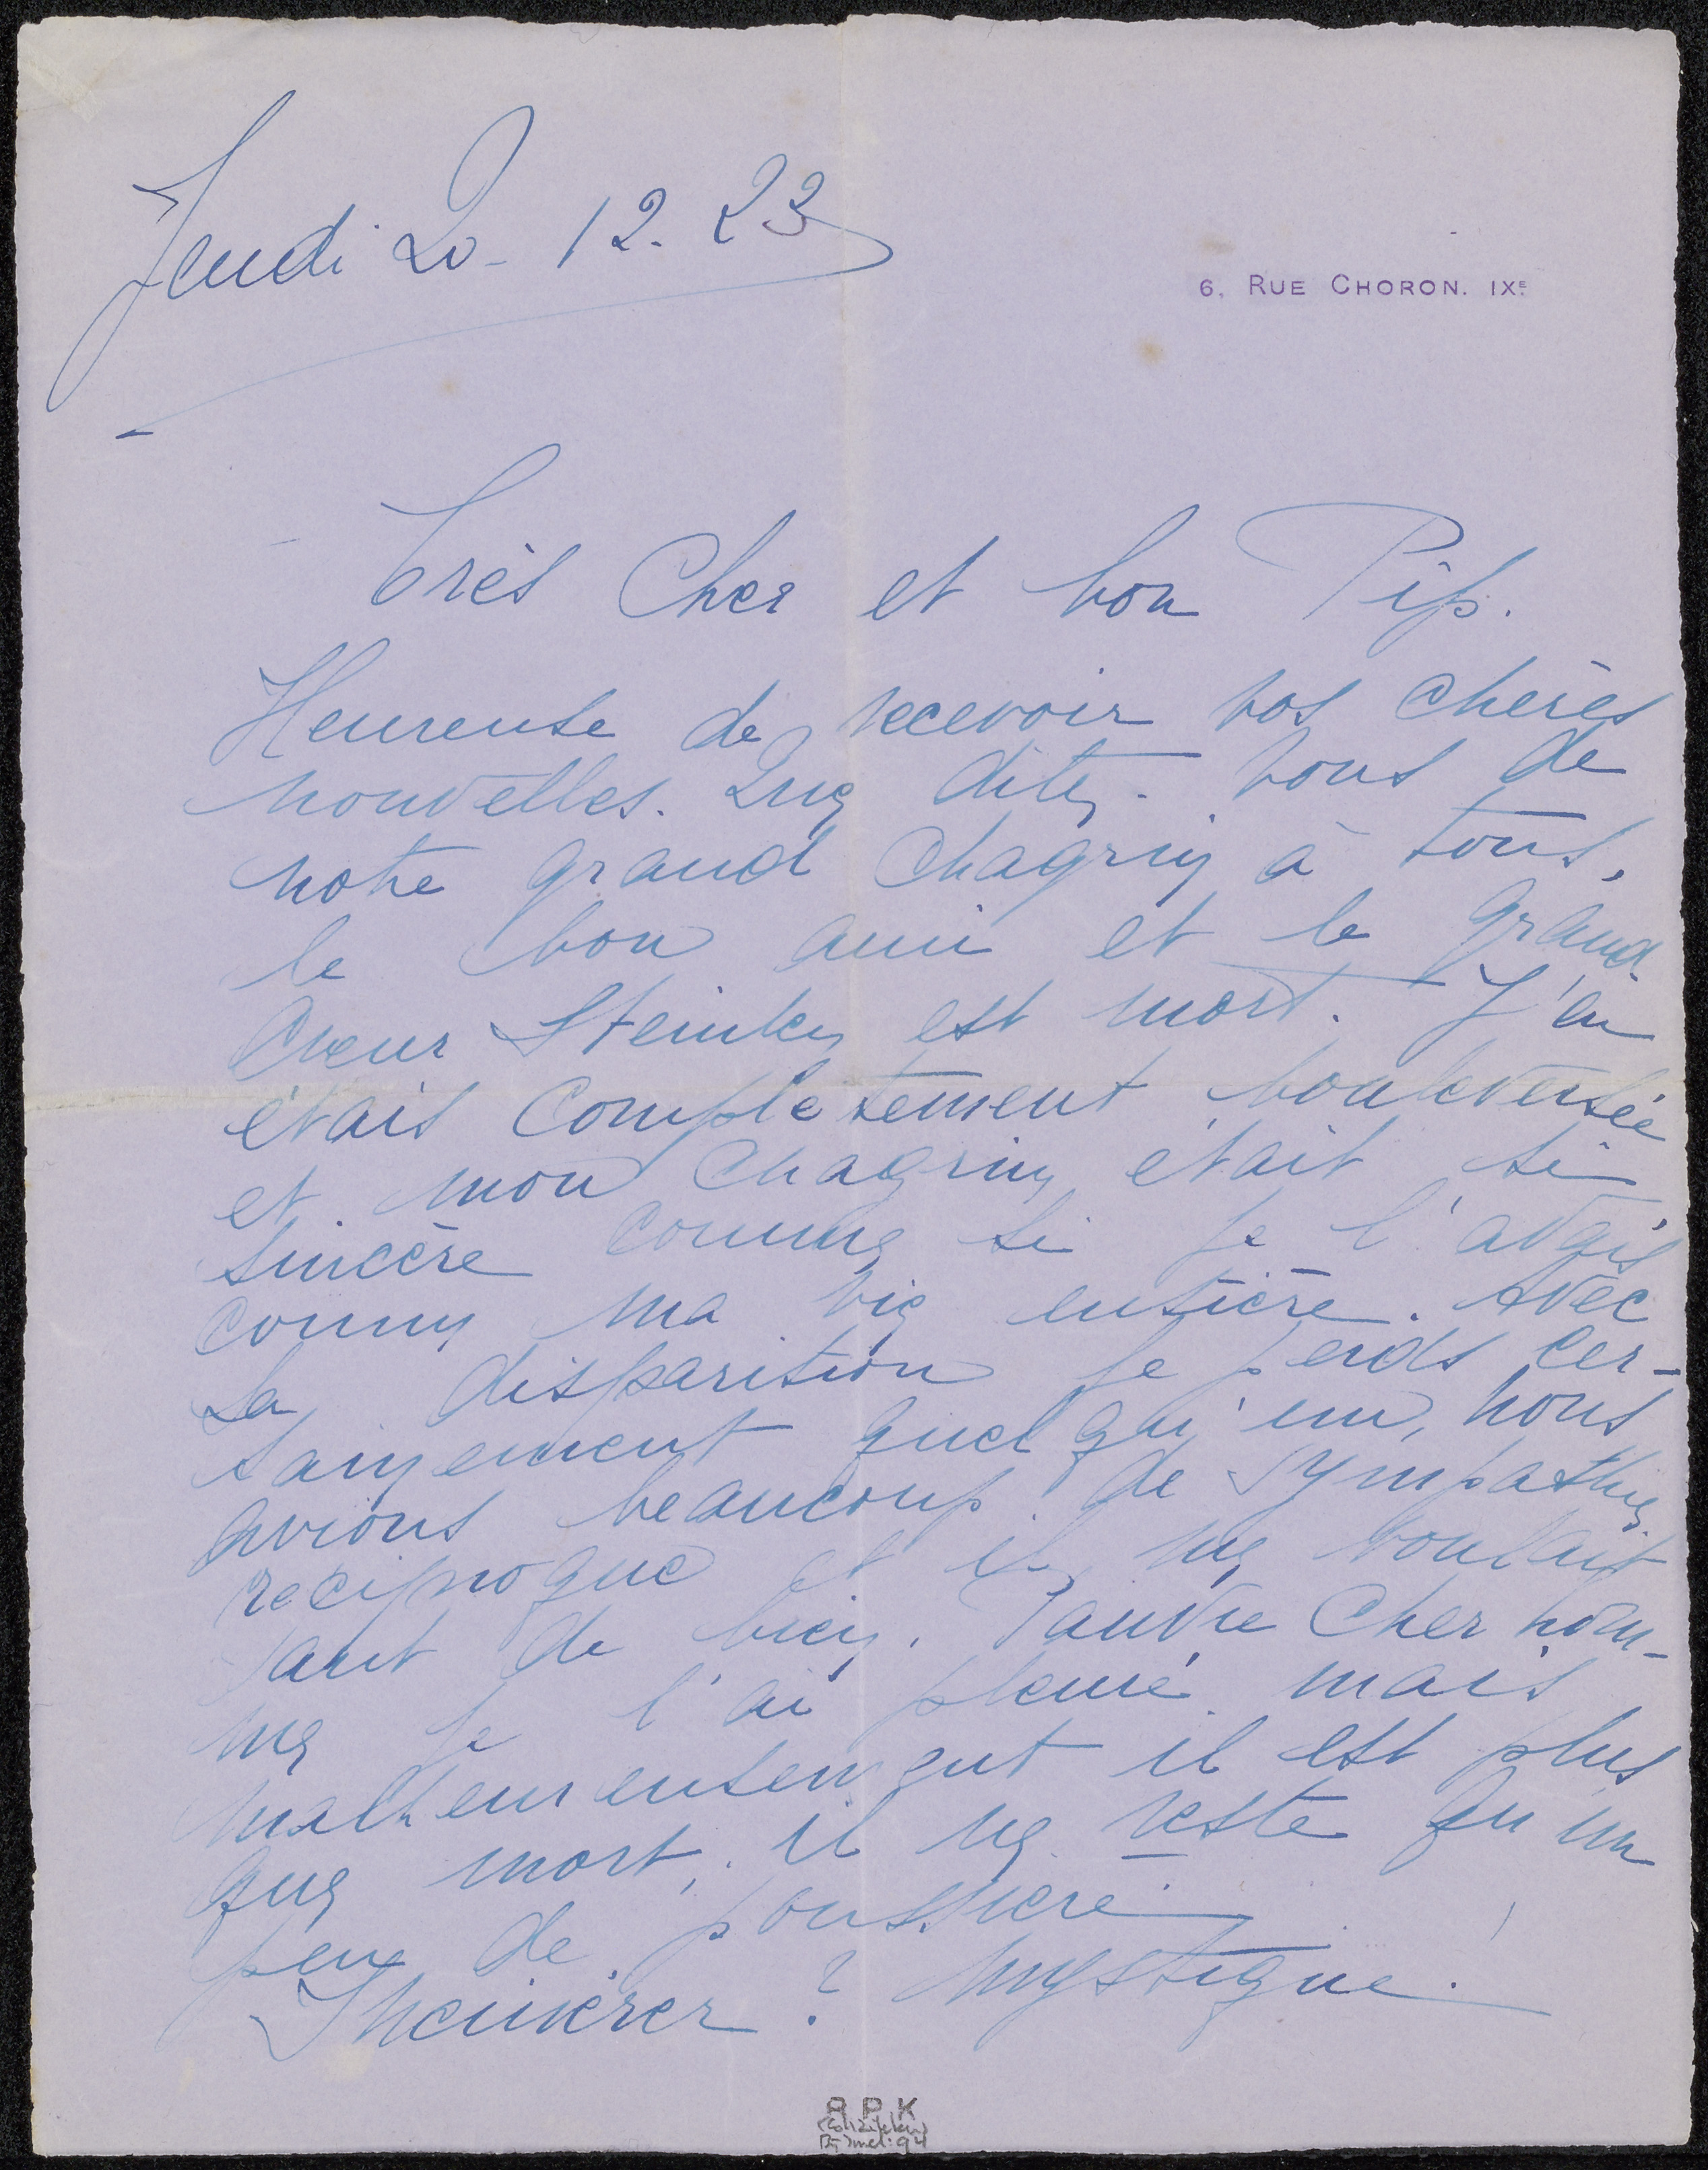 Jeudi 20 - 12. 23
6, RUE CHORON. IXE
Très Cher et bon Pip.
Heureuse de recevoir vos chères
nouvelles. Que dites-vous de
notre grand chagrin à tous,
le bon ami et le grand
Cœur Steinlen est mort. J'en
étais complètement bouleversée
et mon chagrin était si
sincère comme si je l'avais
connu ma vie entière. Avec
sa disparition je perds cer-
tainement quelqu'un, nous
avions beaucoup de sympathie
reciproque et il me voulait
tant de bien. Pauvre Cher hom-
me je l'ai pleuré mais
malheureusement il est plus
que mort, il ne reste qu'un
peu de poussière
Incinérer ? Mystique.
R P K